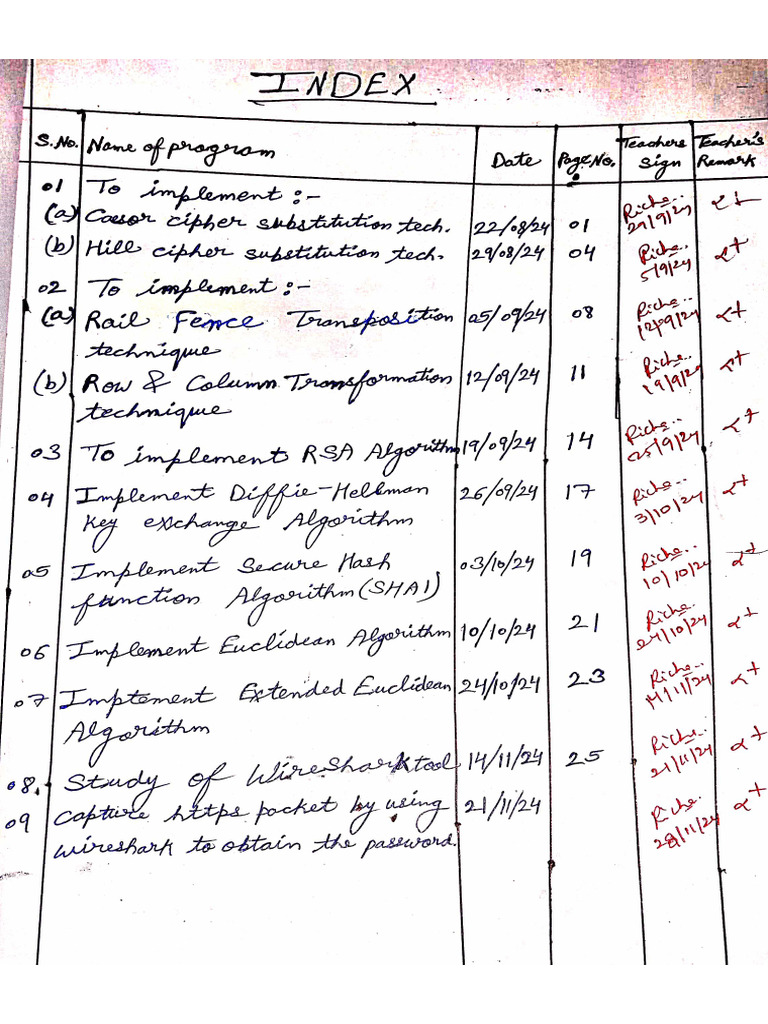 INDEX
S.No. Name of program Date Page No. Teachers Sign Teacher's Remark
01 To implement :-
(a) Caesor cipher substitution tech. 22/08/24 01 29/9/24 α+
(b) Hill cipher substitution tech. 29/08/24 04 5/9/24 α+
02 To implement :-
(a) Rail Fence Transposition 05/09/24 08 12/09/24 α+
technique
(b) Row & Column Transformation 12/09/24 11 19/9/24 α+
technique
03 To implement RSA Algorithm 19/09/24 14 25/9/24 α+
04 Implement Diffie-Hellman 26/09/24 17 3/10/24 α+
Key exchange Algorithm
05 Implement Secure Hash 03/10/24 19 10/10/24 α+
function Algorithm (SHA1)
06 Implement Euclidean Algorithm 10/10/24 21 24/10/24 α+
07 Imptement Extended Euclidean 24/10/24 23 14/11/24 α+
Algorithm
08. Study of WireShark tool 14/11/24 25 21/11/24 α+
09 Capture https packet by using 21/11/24 28/11/24 α+
wireshark to obtain the password.